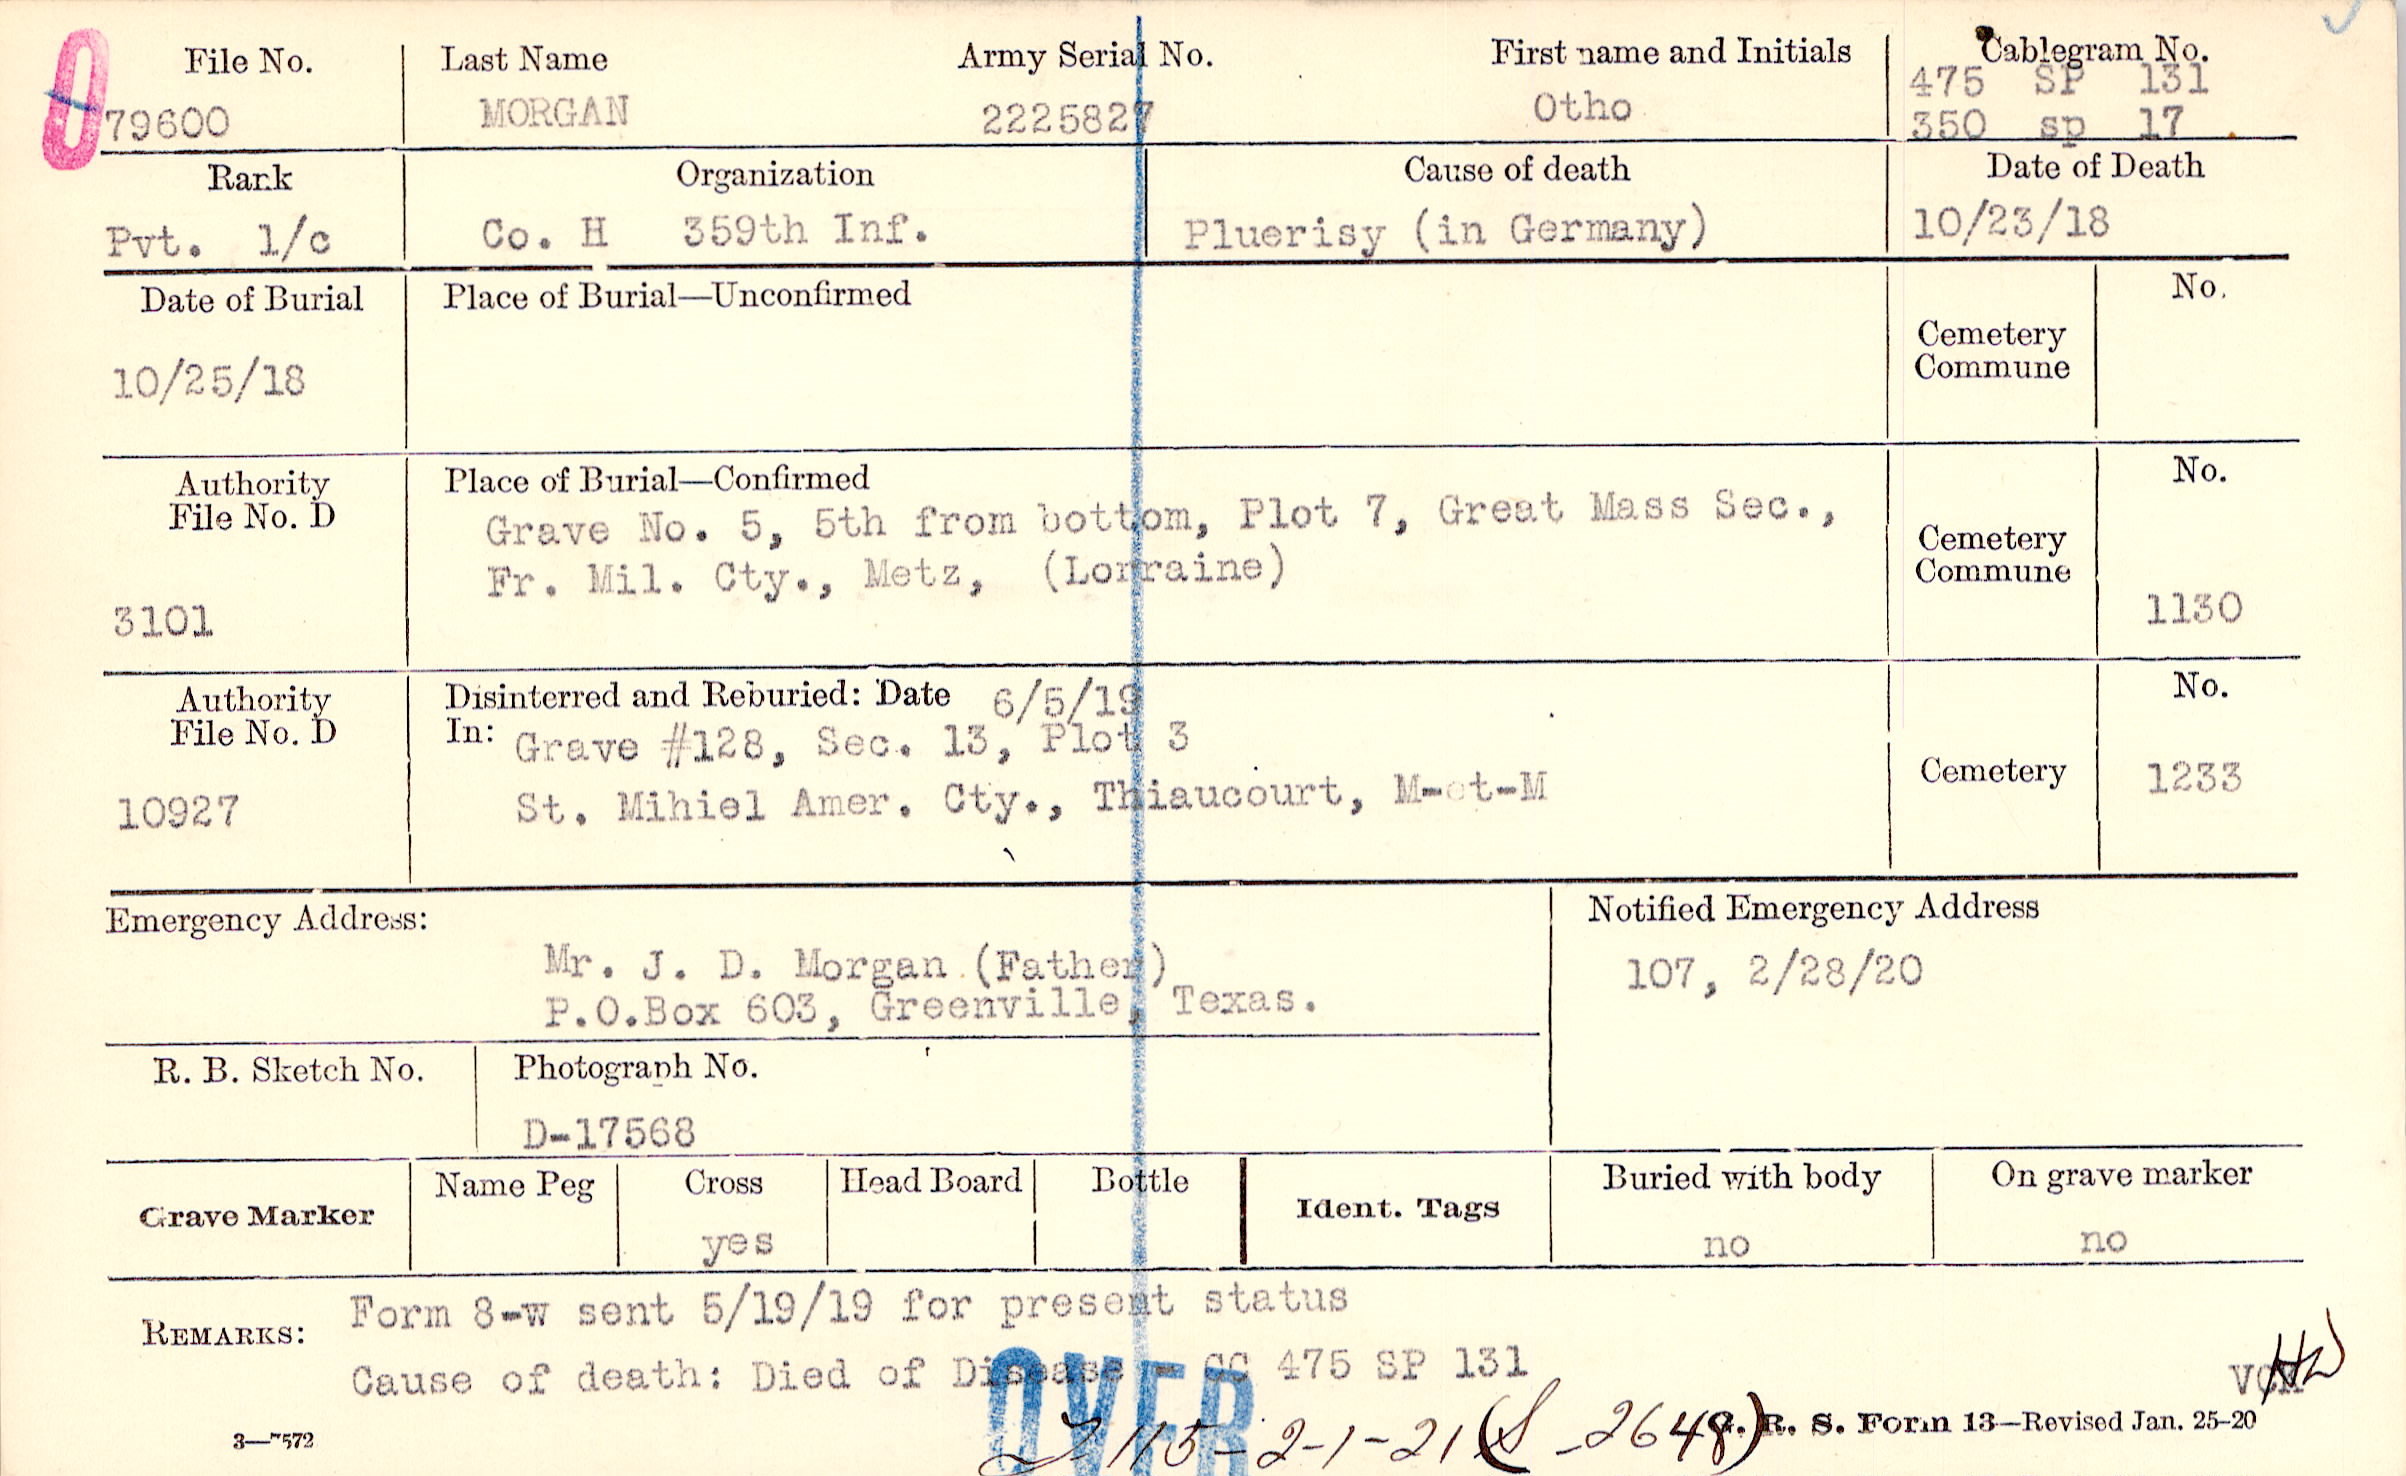 0
File No. Last Name Army Serial No. First name and Initials Cablegram No.
79600 MORGAN 2225827 Otho 475 SP 131
350 sp 17
Rank Organization Cause of death Date of Death
Pvt. 1/c Co. H 359th Inf. Pluerisy (in Germany) 10/23/18
Date of Burial Place of Burial—Unconfirmed No.
Cemetery
Commune
10/25/18
Authority Place of Burial—Confirmed No.
File No. D Grave No. 5, 5th from bottom, Plot 7, Great Mass Sec., Cemetery
Fr. Mil. Cty., Metz, (Lorraine) Commune
3101 1130
Authority Disinterred and Reburied: Date 6/5/19 No.
File No. D In: Grave #128, Sec. 13, Plot 3
Cemetery 1233
10927 St. Mihiel Amer. Cty., Thiaucourt, M-et-M
Emergency Address: Notified Emergency Address
Mr. J. D. Morgan (Father) 107, 2/28/20
P.O.Box 603, Greenville, Texas.
R. B. Sketch No. Photograph No.
D-17568
Grave Marker Name Peg Cross Head Board Bottle Ident. Tags Buried with body On grave marker
yes no no
REMARKS: Form 8-w sent 5/19/19 for present status
Cause of death: Died of Disease - CC 475 SP 131
OVER
115-2-1-21 (S-2648)
3—7572 G. R. S. Form 13—Revised Jan. 25-20